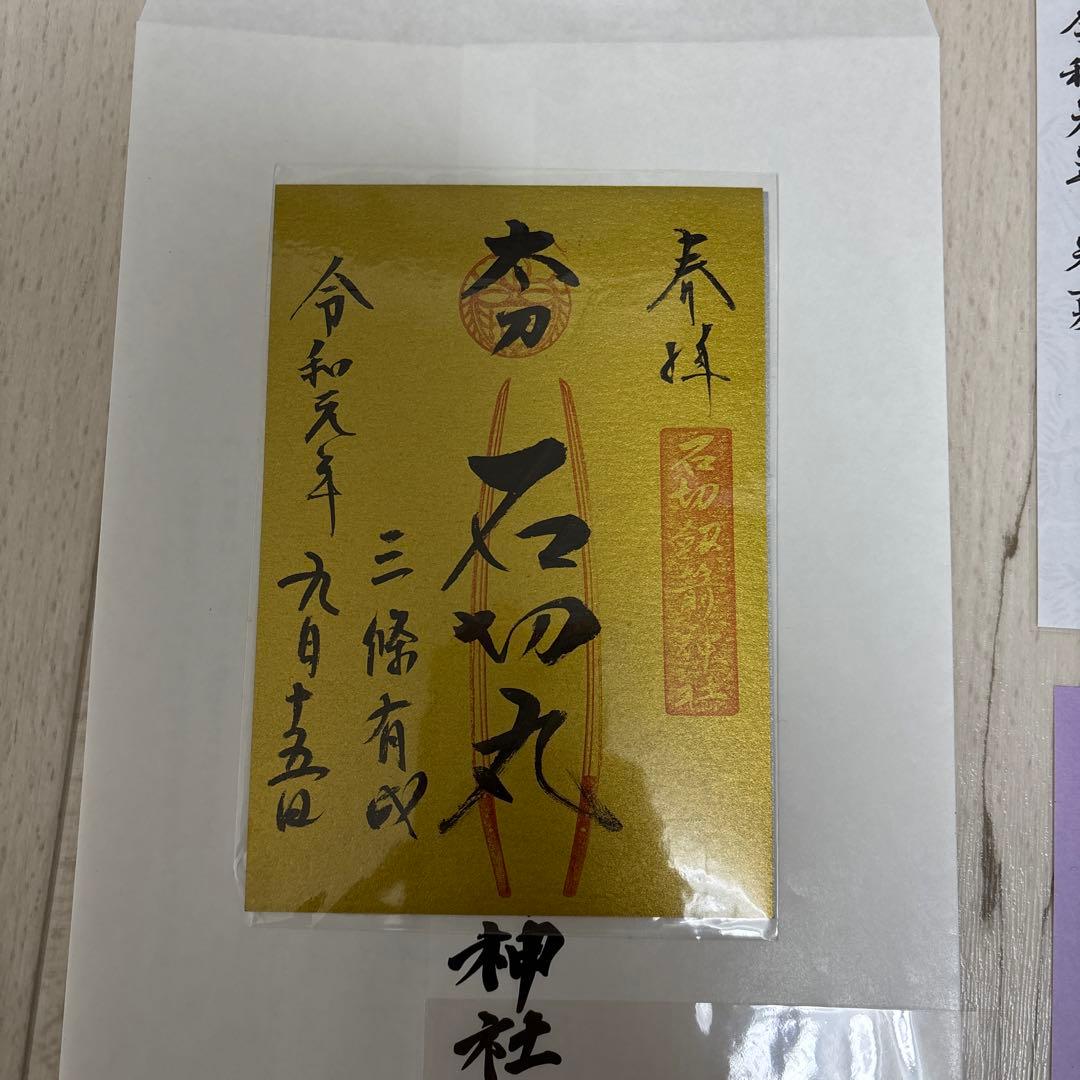 奉拝
石切劔箭神社
太刀
石切丸
三條有成
令和元年
九月十五日
神社
令和元年